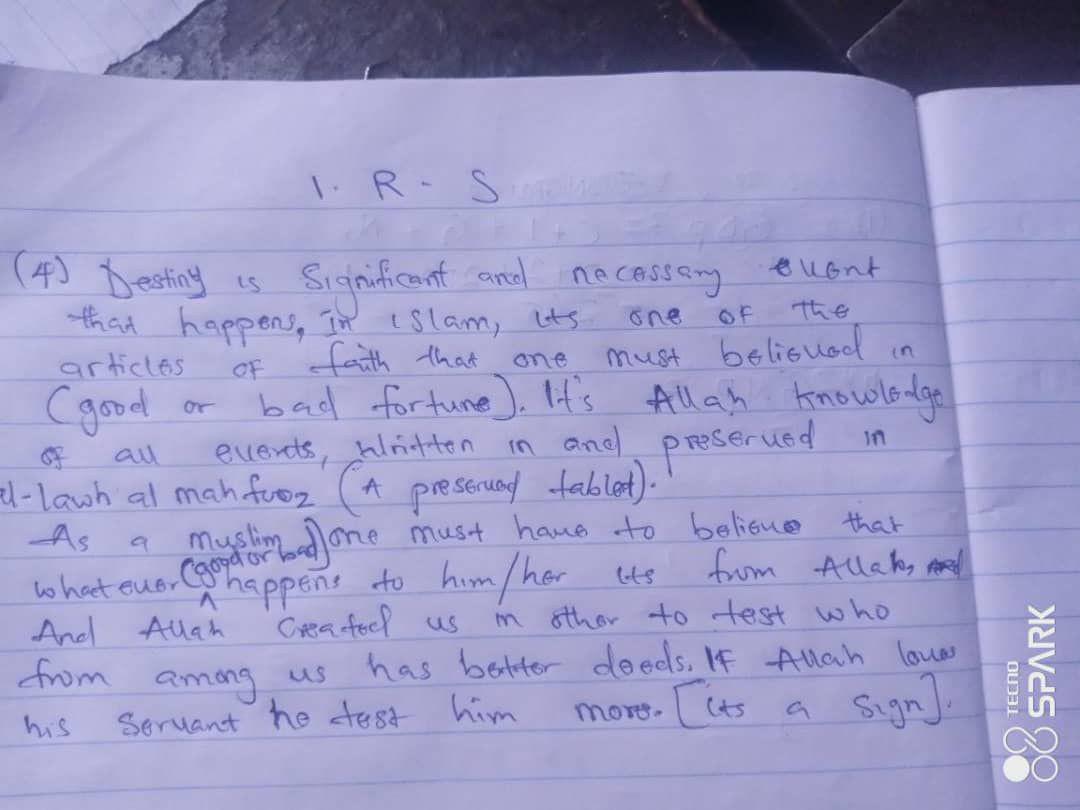 I. R - S
(4) Destiny is Significant and necessary event
that happens, In islam, its one of the
articles of faith that one must believed in
(good or bad fortune). It's Allah knowledge
of all events, written in and preserved in
al-lawh al mahfuoz (A preserved tablet).
As a muslim one must have to believe that
whatever (good or bad) happens to him/her its from Allah,
And Allah Created us in other to test who
from among us has better deeds. If Allah loves
his Servant he test him more. [its a sign].
TECNO
SPARK